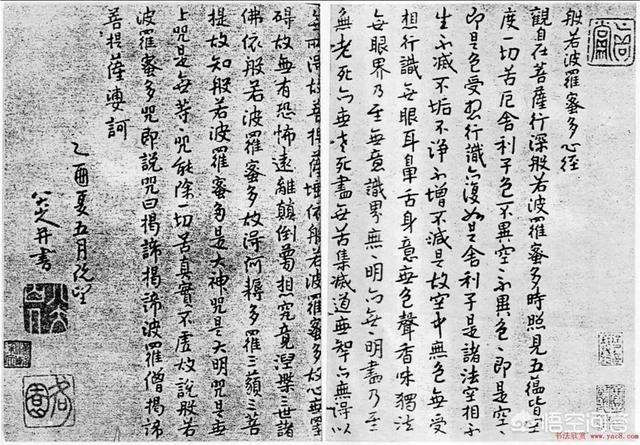 般若波羅蜜多心經
觀自在菩薩行深般若波羅蜜多時照見五蘊皆空
度一切苦厄舍利子色不異空、不異色、即是空、
即是色受想行識亦復如是舍利子是諸法空相不
生不滅不垢不淨不增不減是故空中無色無受
想行識無眼耳鼻舌身意無色聲香味觸法
無眼界乃至無意識界無、明亦無、明盡乃至
無老死亦無老死盡無苦集滅道無智亦無得以
無所得故菩提薩埵依般若波羅蜜多故心無罣
礙故無有恐怖遠離顛倒夢想究竟涅槃三世諸
佛依般若波羅蜜多故得阿耨多羅三藐三菩
提故知般若波羅蜜多是大神咒是大明咒是無
上咒是無等、咒能除一切苦真實不虛故說般若
波羅蜜多咒即說咒曰揭諦揭諦波羅僧揭諦
菩提薩婆訶
乙酉夏五月既望
八大山人書
悟空问答
书法欣赏 www.yac8.com